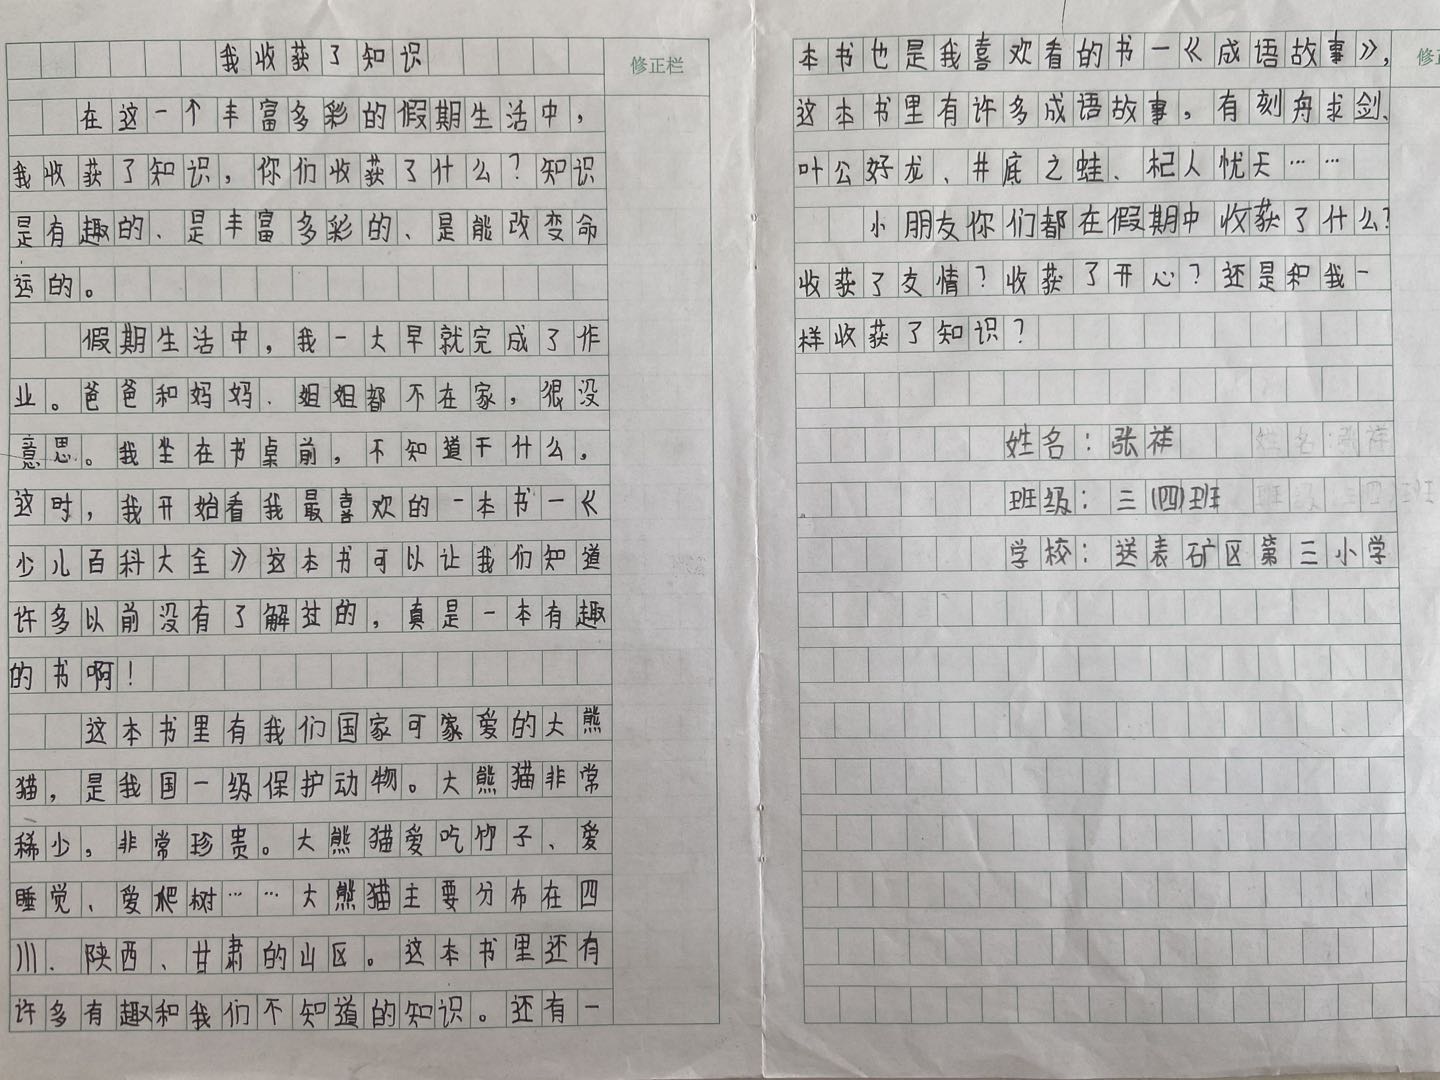 我收获了知识
修正栏
在这一个丰富多彩的假期生活中，
我收获了知识，你们收获了什么？知识
是有趣的、是丰富多彩的、是能改变命
运的。
假期生活中，我一大早就完成了作
业。爸爸和妈妈、姐姐都不在家，很没
意思。我坐在书桌前，不知道干什么。
这时，我开始看我最喜欢的一本书一《
少儿百科大全》这本书可以让我们知道
许多以前没有了解过的，真是一本有趣
的书啊！
这本书里有我们国家可家爱的大熊
猫，是我国一级保护动物。大熊猫非常
稀少，非常珍贵。大熊猫爱吃竹子、爱
睡觉、爱爬树……大熊猫主要分布在四
川、陕西、甘肃的山区。这本书里还有
许多有趣和我们不知道的知识。还有一
本书也是我喜欢看的书一《成语故事》，
修正
这本书里有许多成语故事，有刻舟求剑、
叶公好龙、井底之蛙、杞人忧天……
小朋友你们都在假期中收获了什么？
收获了友情？收获了开心？还是和我一
样收获了知识？
姓名：张祥 姓名：张祥
班级：三（四）班 班级：三（四）班
学校：送表矿区第三小学